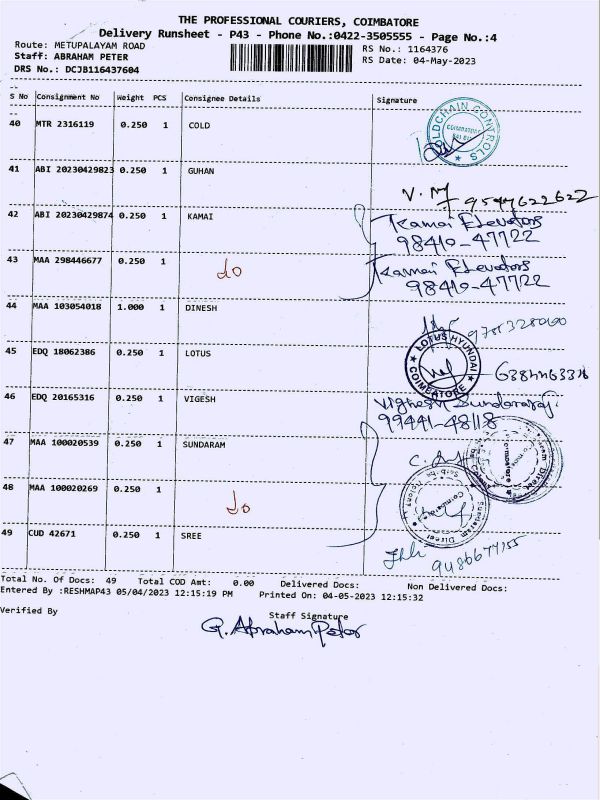 THE PROFESSIONAL COURIERS, COIMBATORE
Delivery Runsheet - P43 - Phone No.:0422-3505555 - Page No.:4
Route: METUPALAYAM ROAD
RS No.: 1164376
Staff: ABRAHAM PETER
RS Date: 04-May-2023
DRS No.: DCJB116437604
S No Consignment No Weight PCS Consignee Details Signature
40 MTR 2316119 0.250 1 COLD
COLDCHAIN CONTROLS
COIMBATORE
41 ABI 20230429823 0.250 1 GUHAN
V. M 9547622622
42 ABI 20230429874 0.250 1 KAMAI
Kamai Elevators
98410-47722
43 MAA 298446677 0.250 1 do
Kamai Elevators
98410-47722
44 MAA 103054018 1.000 1 DINESH
45 EDQ 18062386 0.250 1 LOTUS
LOTUS HYUNDAI
COIMBATORE
46 EDQ 20165316 0.250 1 VIGESH
Vighesh Sundararaj
99441-48118
47 MAA 100020539 0.250 1 SUNDARAM
48 MAA 100020269 0.250 1 do
Sundaram Direct
49 CUD 42671 0.250 1 SREE
Total No. Of Docs: 49 Total COD Amt: 0.00 Delivered Docs: Non Delivered Docs:
Entered By :RESHMAP43 05/04/2023 12:15:19 PM Printed On: 04-05-2023 12:15:32
Verified By
Staff Signature
G. Abraham Peter